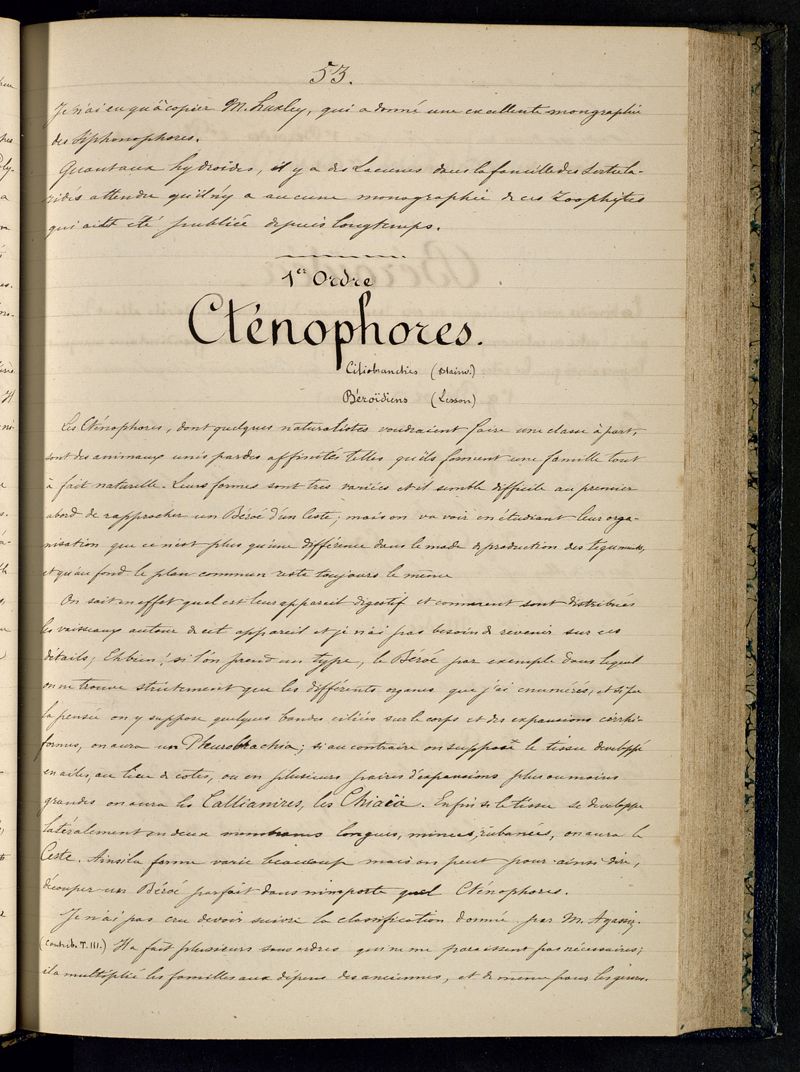 53.
Je n'ai eu qu'à copier M. Huxley, qui a donné une excellente monographie
des Siphonophores.
Quant aux hydroïdes, il y a des Lacunes dans la famille des Sertula-
ridés attendu qu'il n'y a aucune monographie de ces Zoophytes
qui ait été publiée depuis longtemps.
1er Ordre
Cténophores.
Ciliobranches (Blainv.)
Béroïdiens (Lesson)
Les Cténophores, dont quelques naturalistes voudraient faire une classe à part,
sont des animaux unis par des affinités telles qu'ils forment une famille tout
à fait naturelle. Leurs formes sont très variées et il semble difficile au premier
abord de rapprocher un Béroé d'un Ceste; mais on va voir en étudiant leur orga-
nisation que ce n'est plus qu'une différence dans le mode de production des teguments,
et qu'au fond le plan commun reste toujours le même
On sait en effet quel est leur appareil digestif et comment sont distribués
les vaisseaux autour de cet appareil et je n'ai pas besoin de revenir sur ces
détails; Eh bien! si l'on prend un type, le Béroé par exemple dans lequel
on ne trouve strictement que les différents organes que j'ai enumérés, et si par
la pensée on y suppose quelques bandes ciliées sur le corps et des expansions cirrhi-
formes, on aura un Pleurobrachia; si au contraire on suppose le tissu developpé
en ailes, au lieu de cotes, ou en plusieurs paires d'expansions plus ou moins
grandes on aura les Callianires, les Chiaïa. Enfin si le tissu se developpe
latéralement en deux membranes longues, minces, rubanées, on aura le
Ceste. Ainsi la forme varie beaucoup mais on peut pour ainsi dire,
découper un Béroé parfait dans n'importe quel Cténophores.
Je n'ai pas cru devoir suivre la classification donnée par M. Agassiz.
(Contrib. T. III.) Il a fait plusieurs sous ordres qui ne me paraissent pas nécessaires;
il a multiplié les familles aux dépens des anciennes, et de même pour les genres.